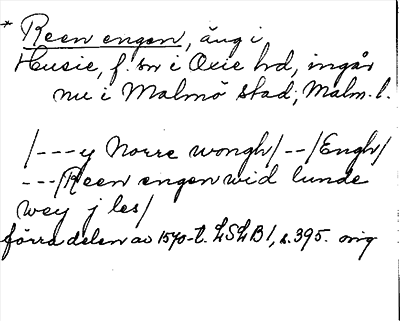 * Reen engen, äng i
Husie, f. sn i Oxie hd, ingår
nu i Malmö stad, Malm. l.
/---y Norre wongh/--/Engh/
---/Reen engen wid lunde
wey j les/
förra delen av 1570-t. LSLB 1, s. 395. orig